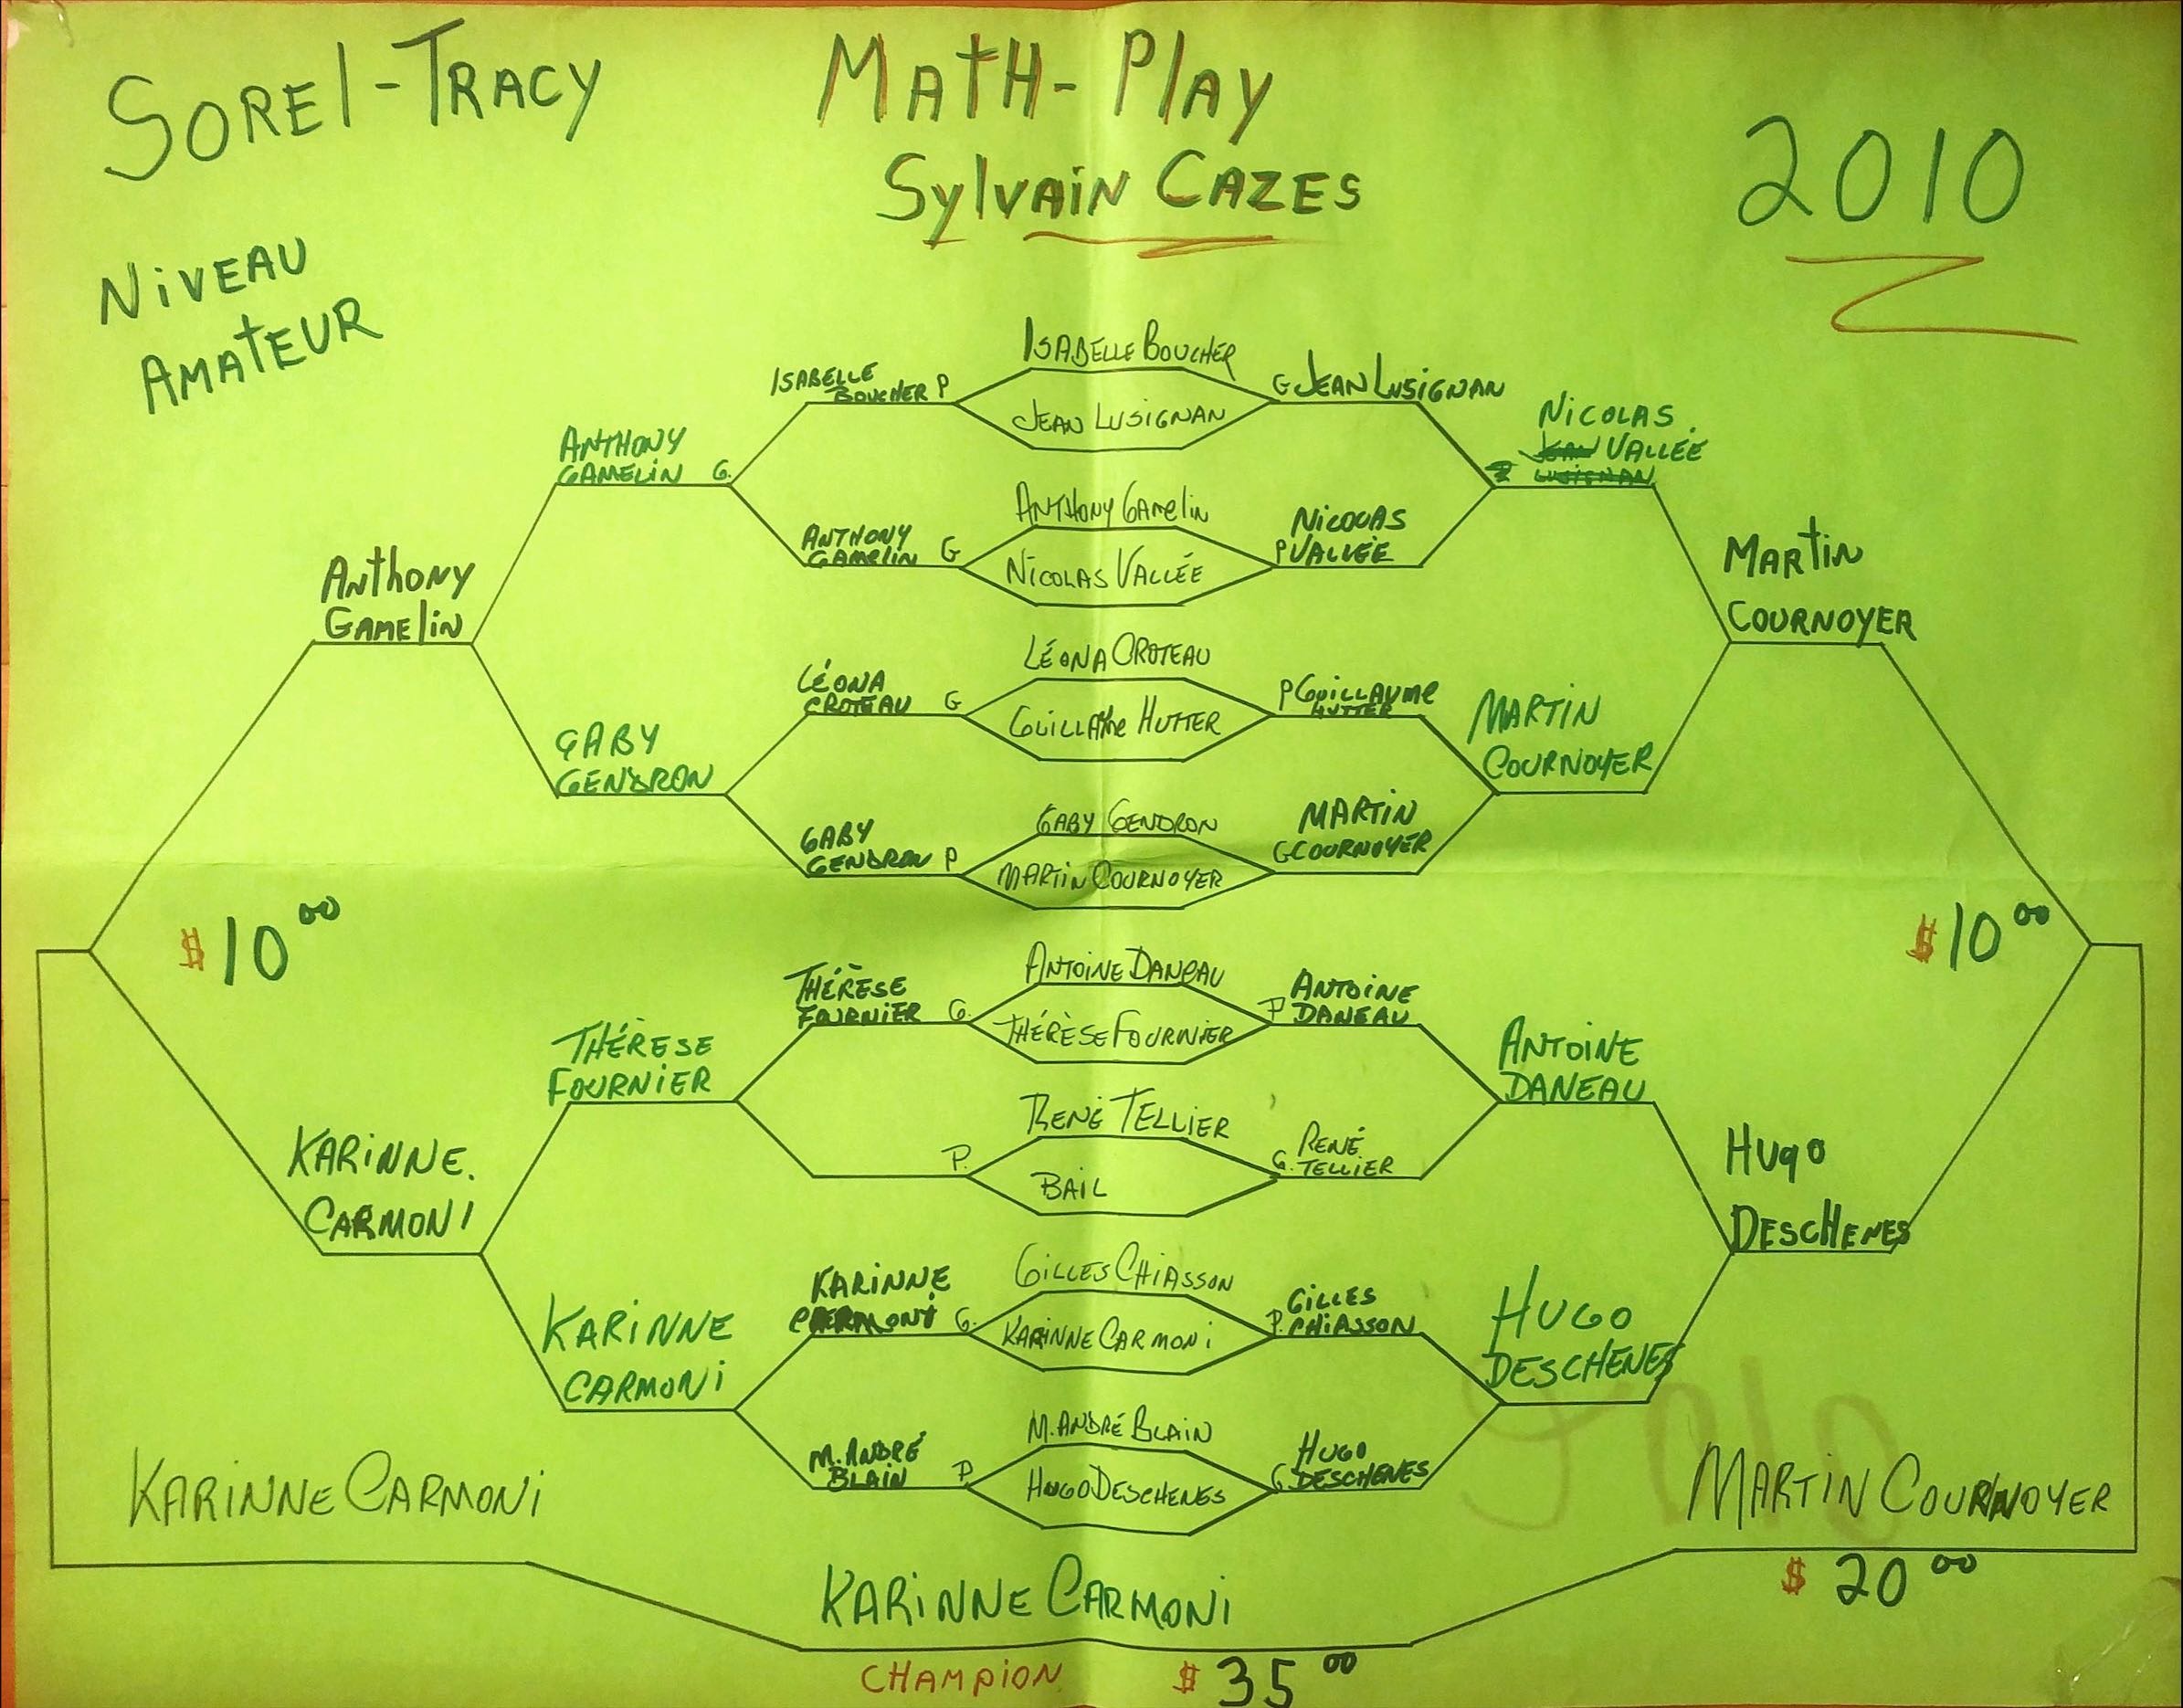 SOREl-TRACY
MATH-PlAY
SylVAiN CAZES
2010
NiVEAU
AMATEUR
ISABELLE BOUCHER
JEAN LUSIGNAN
ISABELLE
BOUCHER P
G JEAN LUSIGNAN
ANTHONY GAMEliN
NICOLAS VALLÉE
ANTHONY
GAMEliN G
NICOLAS
P VALLÉE
LÉONA CROTEAU
GUILLAUME HUTTER
LÉONA
CROTEAU G
P GUILLAUME
HUTTER
GABY GENDRON
MARTIN COURNOYER
GABY
GENDRON P
MARTIN
G COURNOYER
ANTOINE DANEAU
THÉRÈSE FOURNIER
THÉRÈSE
FOURNIER G.
ANTOINE
P DANEAU
RENÉ TELLIER
BAIL
P.
RENÉ
G. TELLIER
GILLES CHIASSON
KARINNE CARMONI
KARINNE
CARMONI G.
GILLES
P. CHIASSON
M. ANDRÉ BLAIN
HUGO DESCHENES
M. ANDRÉ
BLAIN P
HUGO
G DESCHENES
ANTHONY
GAMELIN G.
GABY
GENDRON
THÉRÈSE
FOURNIER
KARINNE
CARMONI
NICOLAS
JEAN VALLÉE
LUSIGNAN
MARTIN
COURNOYER
ANTOINE
DANEAU
HUGO
DESCHENES
ANTHONY
GAMEliN
KARINNE.
CARMONI
MARTIN
COURNOYER
HUGO
DESCHENES
$10 00
$10 00
KARINNE CARMONI
MARTIN COURNOYER
$ 20 00
KARINNE CARMONI
CHAMPION $ 35 00